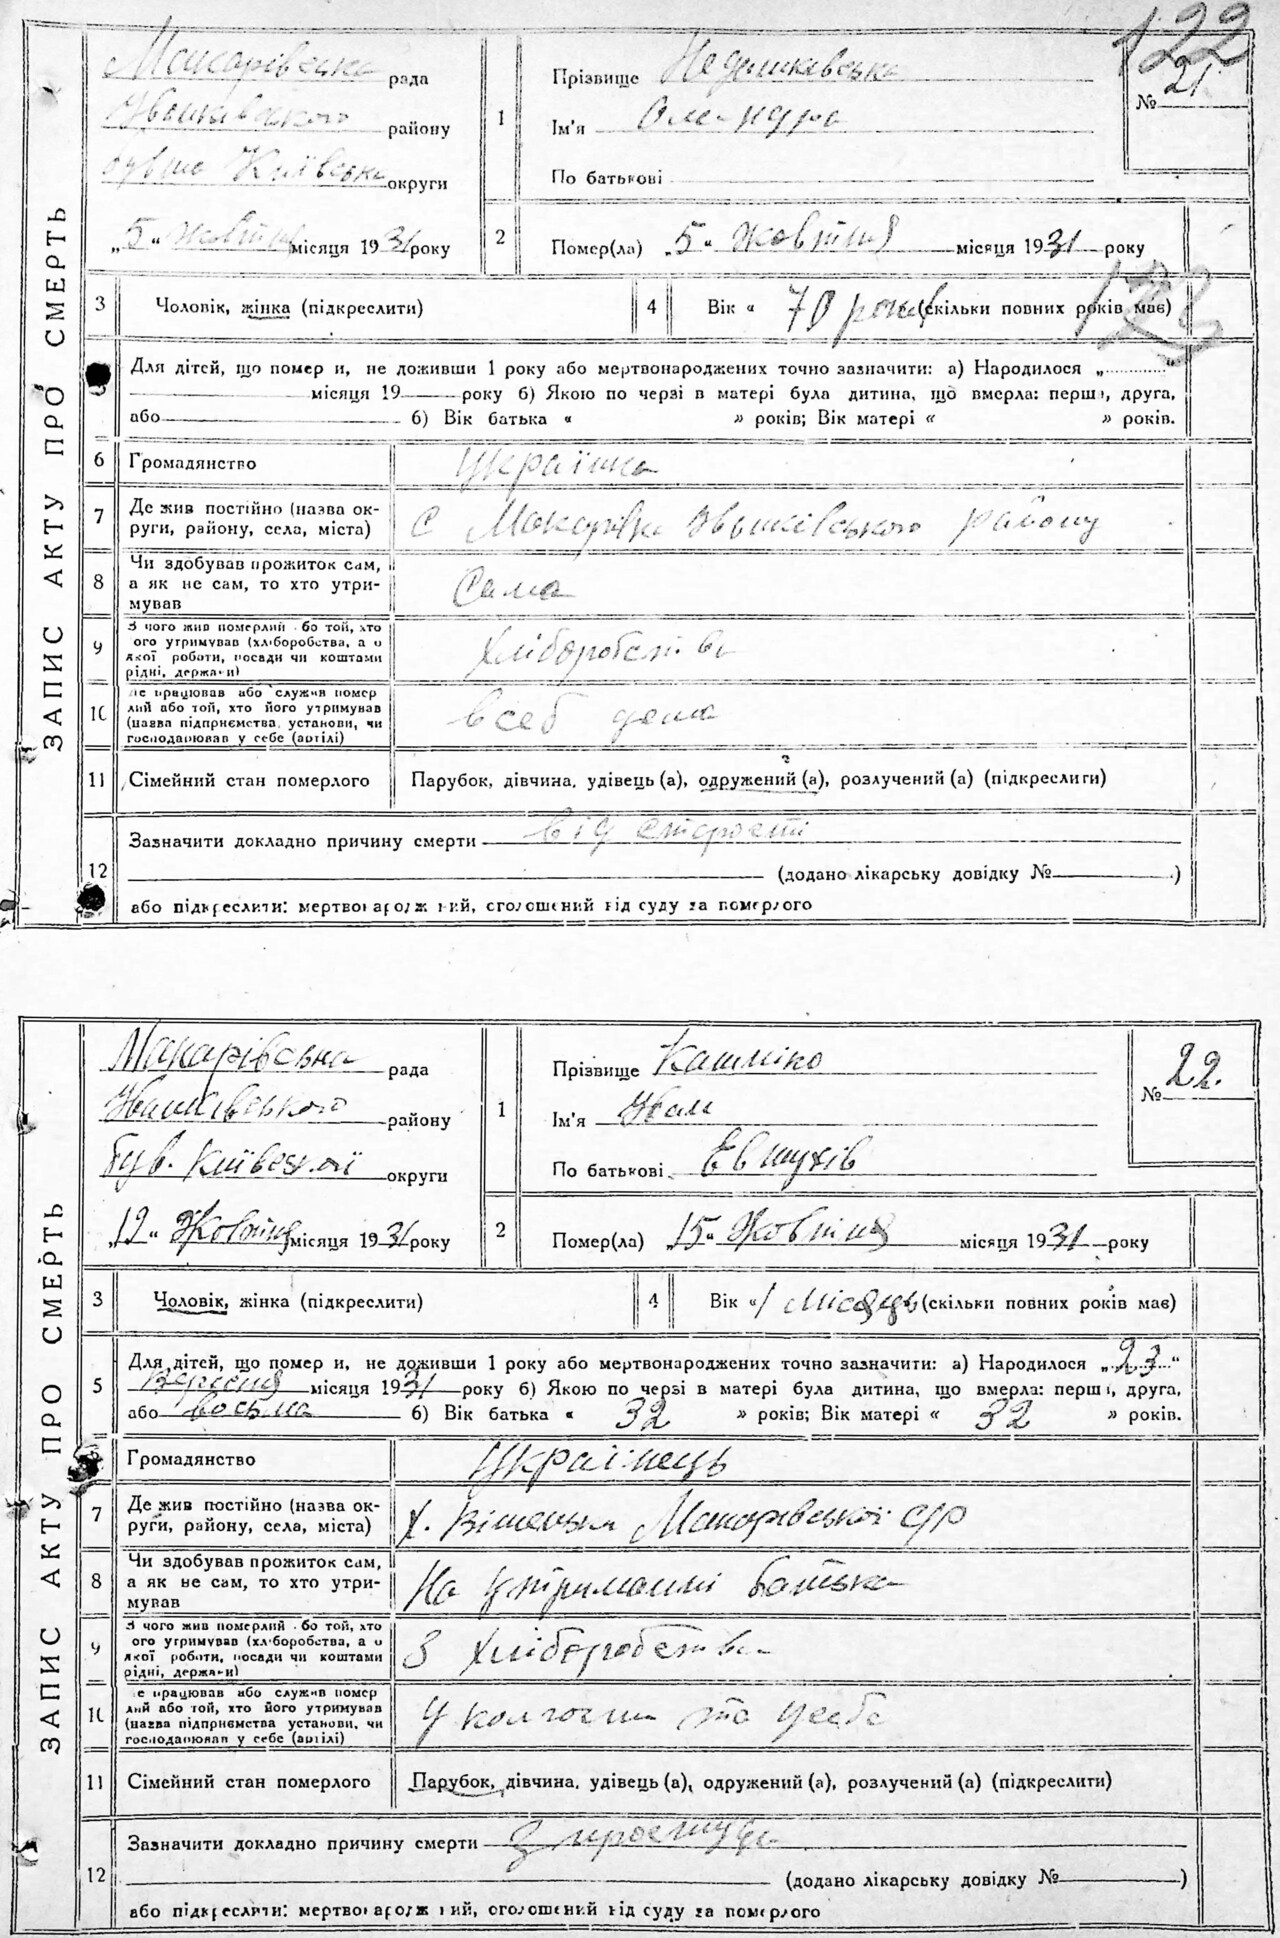 122
ЗАПИС АКТУ ПРО СМЕРТЬ
Макарівська рада
Іванківського району
бувш Київська округи
„5“ жовтня місяця 1931 року
1
Прізвище Недашківська
Ім'я
По батькові
№ 21
2
Помер(ла) „5“ жовтня місяця 1931 року
3 Чоловік, жінка (підкреслити)
4 Вік « 70 років (скільки повних років має)
123
Для дітей, що помер и, не доживши 1 року або мертвонароджених точно зазначити: а) Народилося „............“
місяця 19 року б) Якою по черзі в матері була дитина, що вмерла: перша, друга,
або б) Вік батька « » років; Вік матері « » років.
6 Громадянство Українка
7 Де жив постійно (назва ок-
руги, району, села, міста) с Макарівка Іванківського району
8 Чи здобував прожиток сам,
а як не сам, то хто утри-
мував Сама
9 З чого жив померлий бо той, хто
ого утримував (хліборобства, а о
якої роботи, посади чи коштами
рідні, держави) Хліборобства
10 е працював або служив помер
лий або той, хто його утримував
(назва підприємства установи, чи
господарював у себе (артілі) в себе дома
11 Сімейний стан померлого Парубок, дівчина, удівець (а), одружений (а), розлучений (а) (підкреслити)
12 Зазначити докладно причину смерти від старості
(додано лікарську довідку № )
або підкреслити: мертвонароджений, оголошений від суду за померлого
ЗАПИС АКТУ ПРО СМЕРТЬ
Макарівська рада
Іванківського району
був. Київської округи
„19“ Жовтня місяця 1931 року
1
Прізвище Кашпіко
Ім'я Іван
По батькові Евтухів
№ 22.
2
Помер(ла) „15“ Жовтня місяця 1931 року
3 Чоловік, жінка (підкреслити)
4 Вік « 1 місяць (скільки повних років має)
5 Для дітей, що помер и, не доживши 1 року або мертвонароджених точно зазначити: а) Народилося „23“
Вересня місяця 1931 року б) Якою по черзі в матері була дитина, що вмерла: перша, друга,
або восьма б) Вік батька « 32 » років; Вік матері « 32 » років.
Громадянство Українець
7 Де жив постійно (назва ок-
руги, району, села, міста) х. Макарівської с/р
8 Чи здобував прожиток сам,
а як не сам, то хто утри-
мував На утриманні батька
9 З чого жив померлий бо той, хто
ого утримував (хліборобства, а о
якої роботи, посади чи коштами
рідні, держави) З хліборобства
10 е працював або служив помер
лий або той, хто його утримував
(назва підприємства установи, чи
господарював у себе (артілі) У колгоспи та у себе
11 Сімейний стан померлого Парубок, дівчина, удівець (а), одружений (а), розлучений (а) (підкреслити)
12 Зазначити докладно причину смерти З простуди
(додано лікарську довідку № )
або підкреслити: мертвонароджений, оголошений від суду за померлого